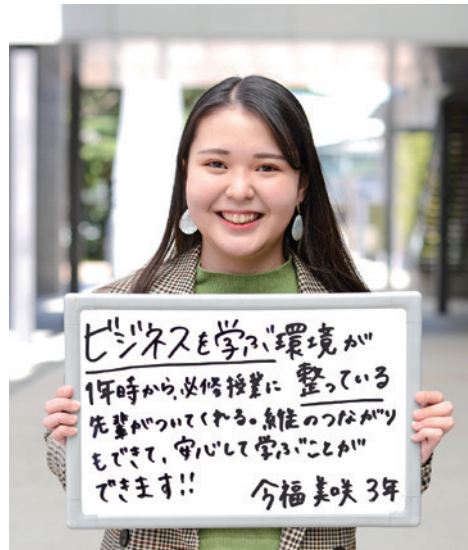 ビジネスを学ぶ環境が
整っている
1年時から、必修授業に
先輩がついてくれる。縦のつながり
もできて、安心して学ぶことが
できます!!
今福 美咲 3年